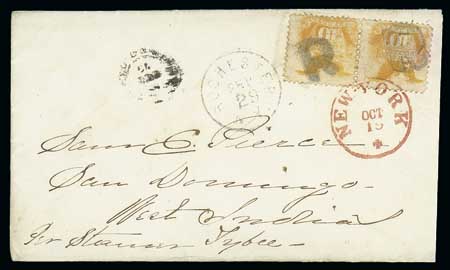 10 10
R
ROCHESTER
NEW YORK
OCT
19
Sam E. Pierce
San Domingo
West India
Per Steamer Tybee